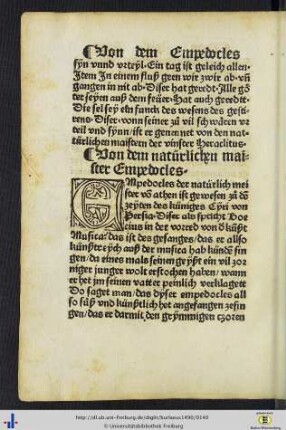 Von dem Empedocles
syn vnnd vrteyl. Ein tag ist geleich allen.
Item In einem fluß geen wir zwir ab. vñ
gangen in nit ab. Diser hat geredt. Alle gö
ter seyen auß dem feüer. Hat auch geredt.
Die sel sey ein funck des wesens des gesti
rens. Diser. vonn seiner zů vil schwären vr
teil vnd synn. ist er genennet von den nat
türlichen maistern der vinster Heraclitus.
Von dem natürlichen mai-
ster Empedocles.
Empedocles der natürlich mei
ster võ athen ist gewesen zů dẽ
zeyten des küniges Cyri von
Persia. Diser als spricht Boe
cius in der vorred von d̃ kũst
Musica. das ist des gesanges. das er also
künstreych auß der musica hab künde sin
gen. da eines mals seinen gespst ein vil zor
niger junger wolt erstochen haben. wann
er het jm seinen vatter peinlich verklagett
Do saget man. das dyser empedocles all
so süß vnd künstlicht het angefangen zesin
gen. das er darmit den grymmigen czoren
http://dl.ub.uni-freiburg.de/diglit/burlaeus1490/0140
© Universitätsbibliothek Freiburg